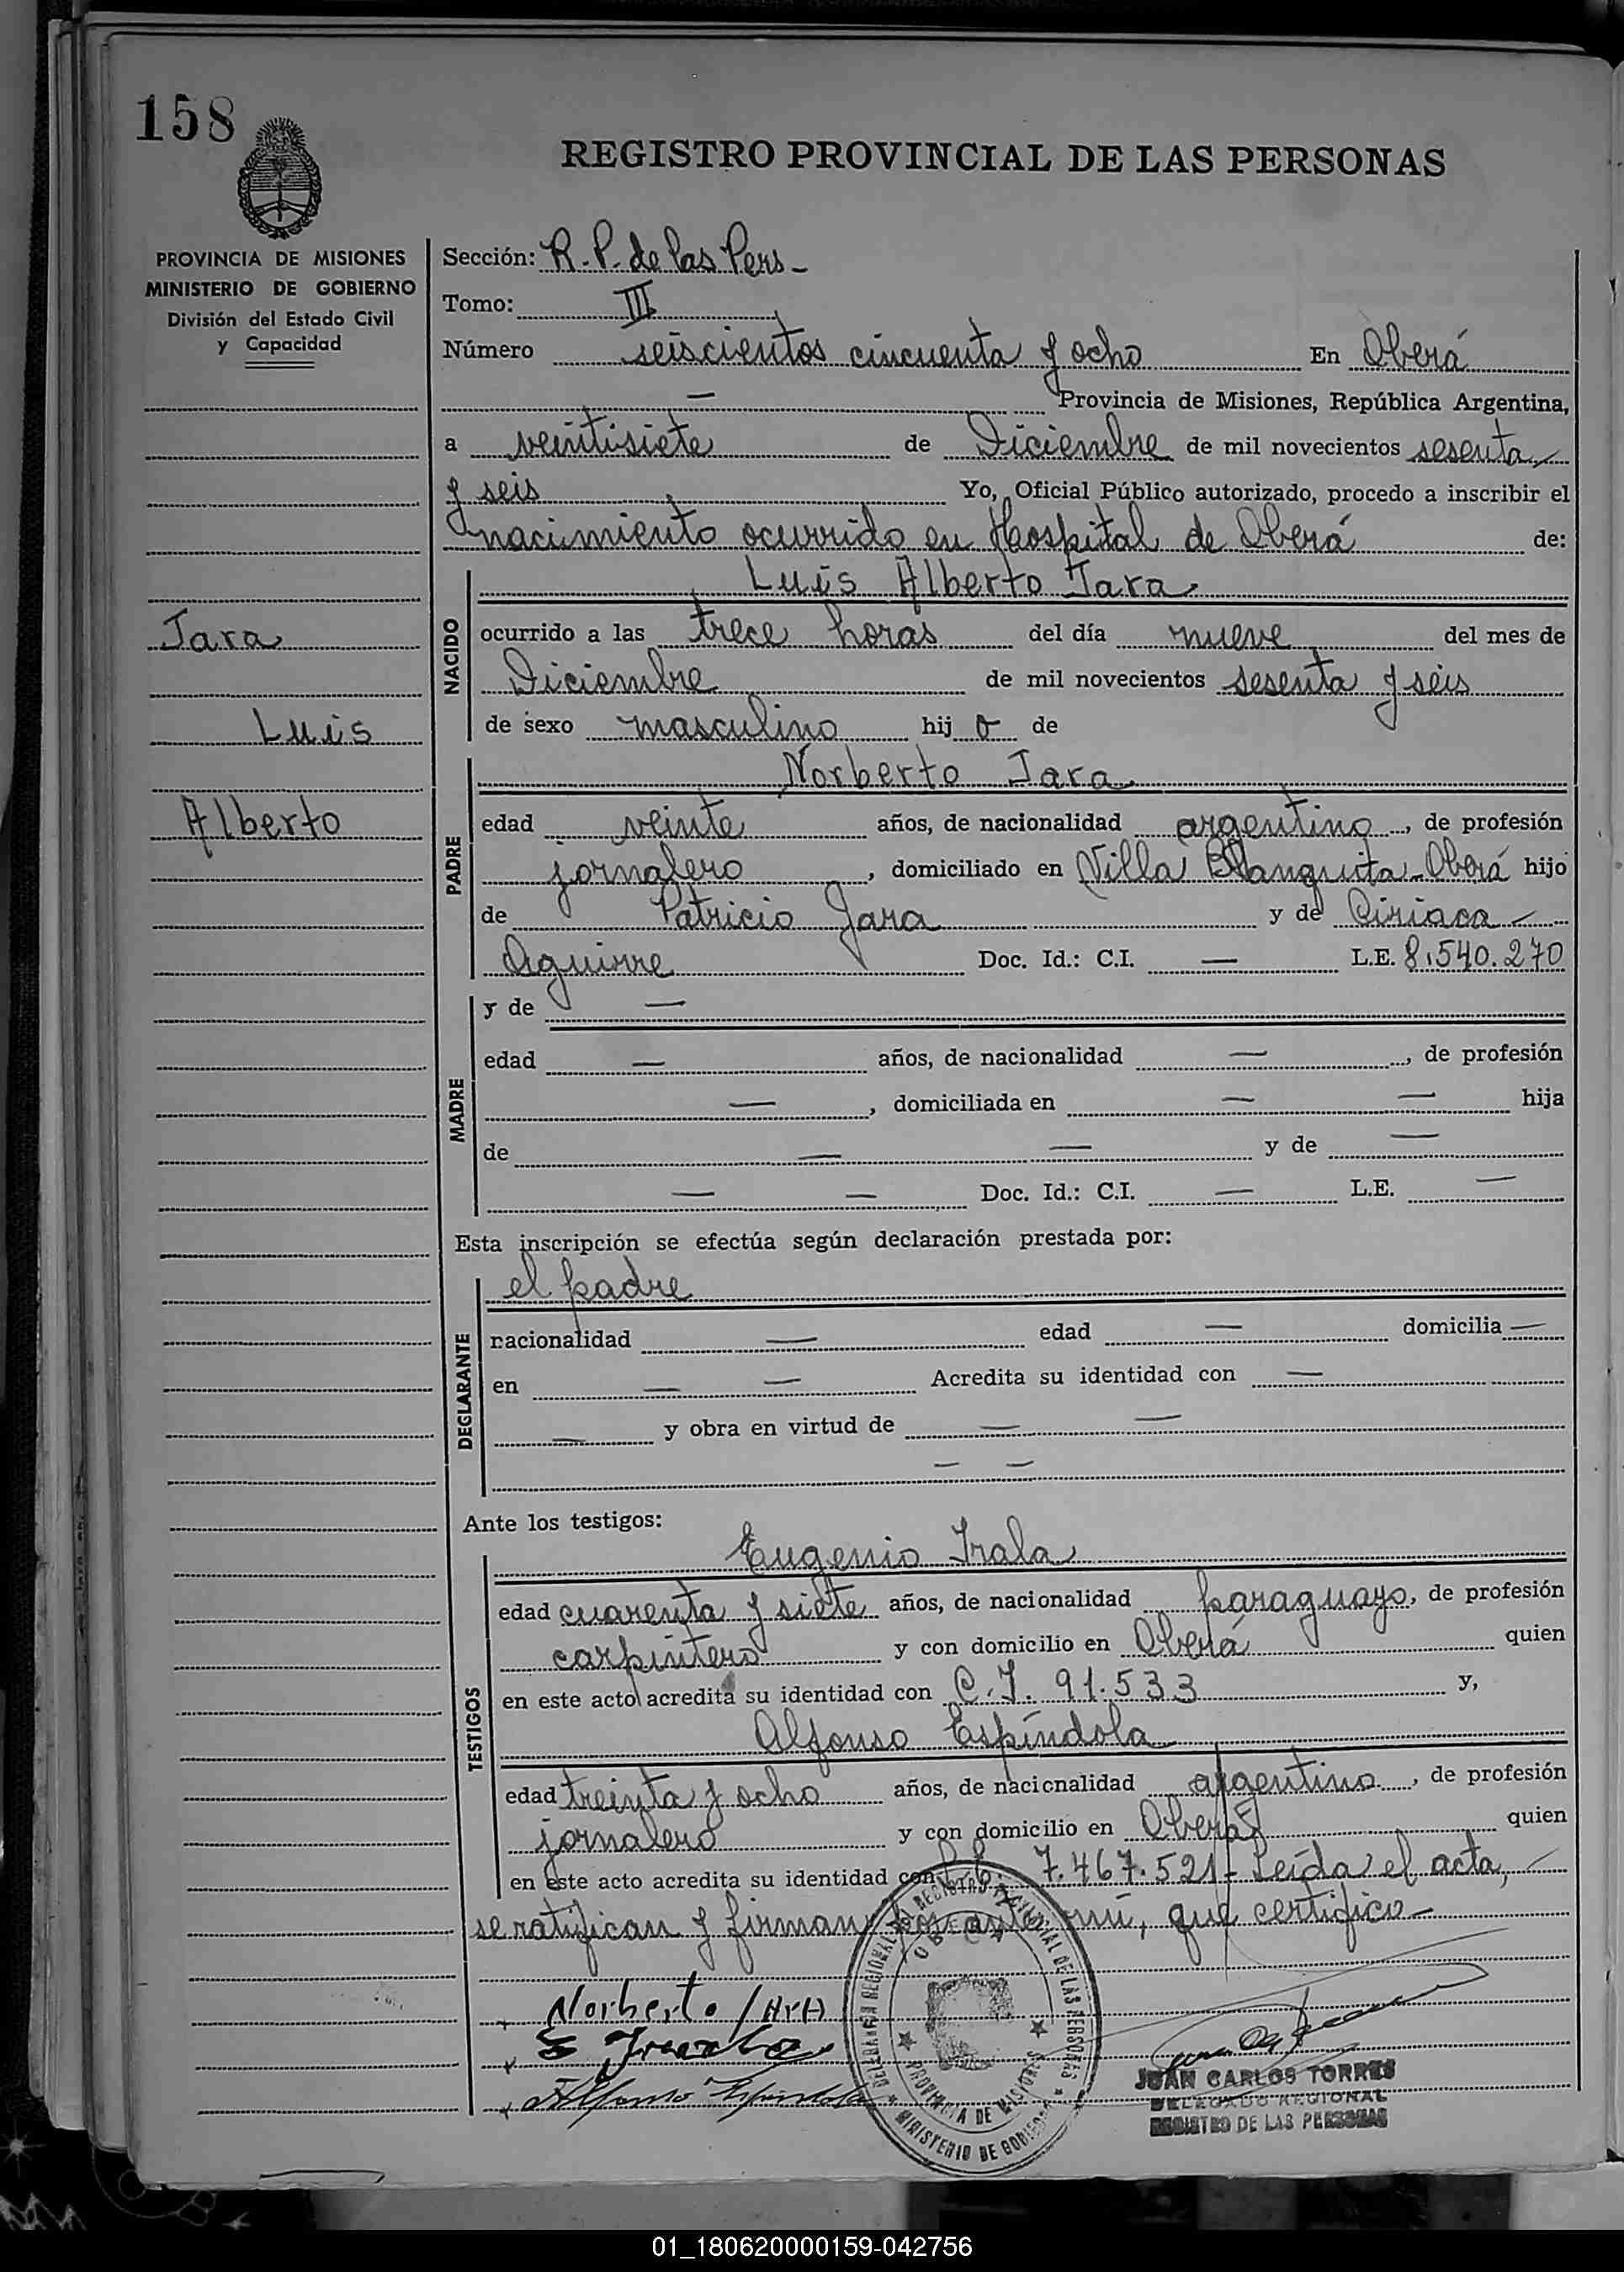 158
REGISTRO PROVINCIAL DE LAS PERSONAS
PROVINCIA DE MISIONES
MINISTERIO DE GOBIERNO
División del Estado Civil
y Capacidad
Jara
Luis
Alberto
Sección: R. P. de las Pers -
Tomo: III
Número seiscientos cincuenta y ocho En Oberá
— Provincia de Misiones, República Argentina,
a veintisiete de Diciembre de mil novecientos sesenta
y seis Yo, Oficial Público autorizado, procedo a inscribir el
nacimiento ocurrido en Hospital de Oberá de:
NACIDO
Luis Alberto Jara
ocurrido a las trece horas del día nueve del mes de
Diciembre de mil novecientos sesenta y seis
de sexo masculino hij o de
PADRE
Norberto Jara
edad veinte años, de nacionalidad argentino, de profesión
jornalero, domiciliado en Villa Blanquita - Oberá hijo
de Patricio Jara y de Ciriaca —
Aguirre Doc. Id.: C.I. — L.E. 8.540.270
MADRE
y de —
edad — años, de nacionalidad —, de profesión
—, domiciliada en — — hija
de — — y de —
— — Doc. Id.: C.I. — L.E. —
Esta inscripción se efectúa según declaración prestada por:
DECLARANTE
el padre
nacionalidad — edad — domicilia —
en — — Acredita su identidad con —
— y obra en virtud de — —
— —
Ante los testigos:
TESTIGOS
Eugenio Irala
edad cuarenta y siete años, de nacionalidad paraguayo, de profesión
carpintero y con domicilio en Oberá quien
en este acto acredita su identidad con C. I. 91.533 y,
Alfonso Espíndola
edad treinta y ocho años, de nacionalidad argentino, de profesión
jornalero y con domicilio en Oberá quien
en este acto acredita su identidad con 7.467.521 - Leída el acta, —
se ratifican y firman por ante mí, que certifico -
Norberto JArA
Alfonso Espindola
DELEGACION REGIONAL DEL REGISTRO PROVINCIAL DE LAS PERSONAS
OBERA
PROVINCIA DE MISIONES
MINISTERIO DE GOBIERNO
JUAN CARLOS TORRES
DELEGADO REGIONAL
REGISTRO DE LAS PERSONAS
01_180620000159-042756